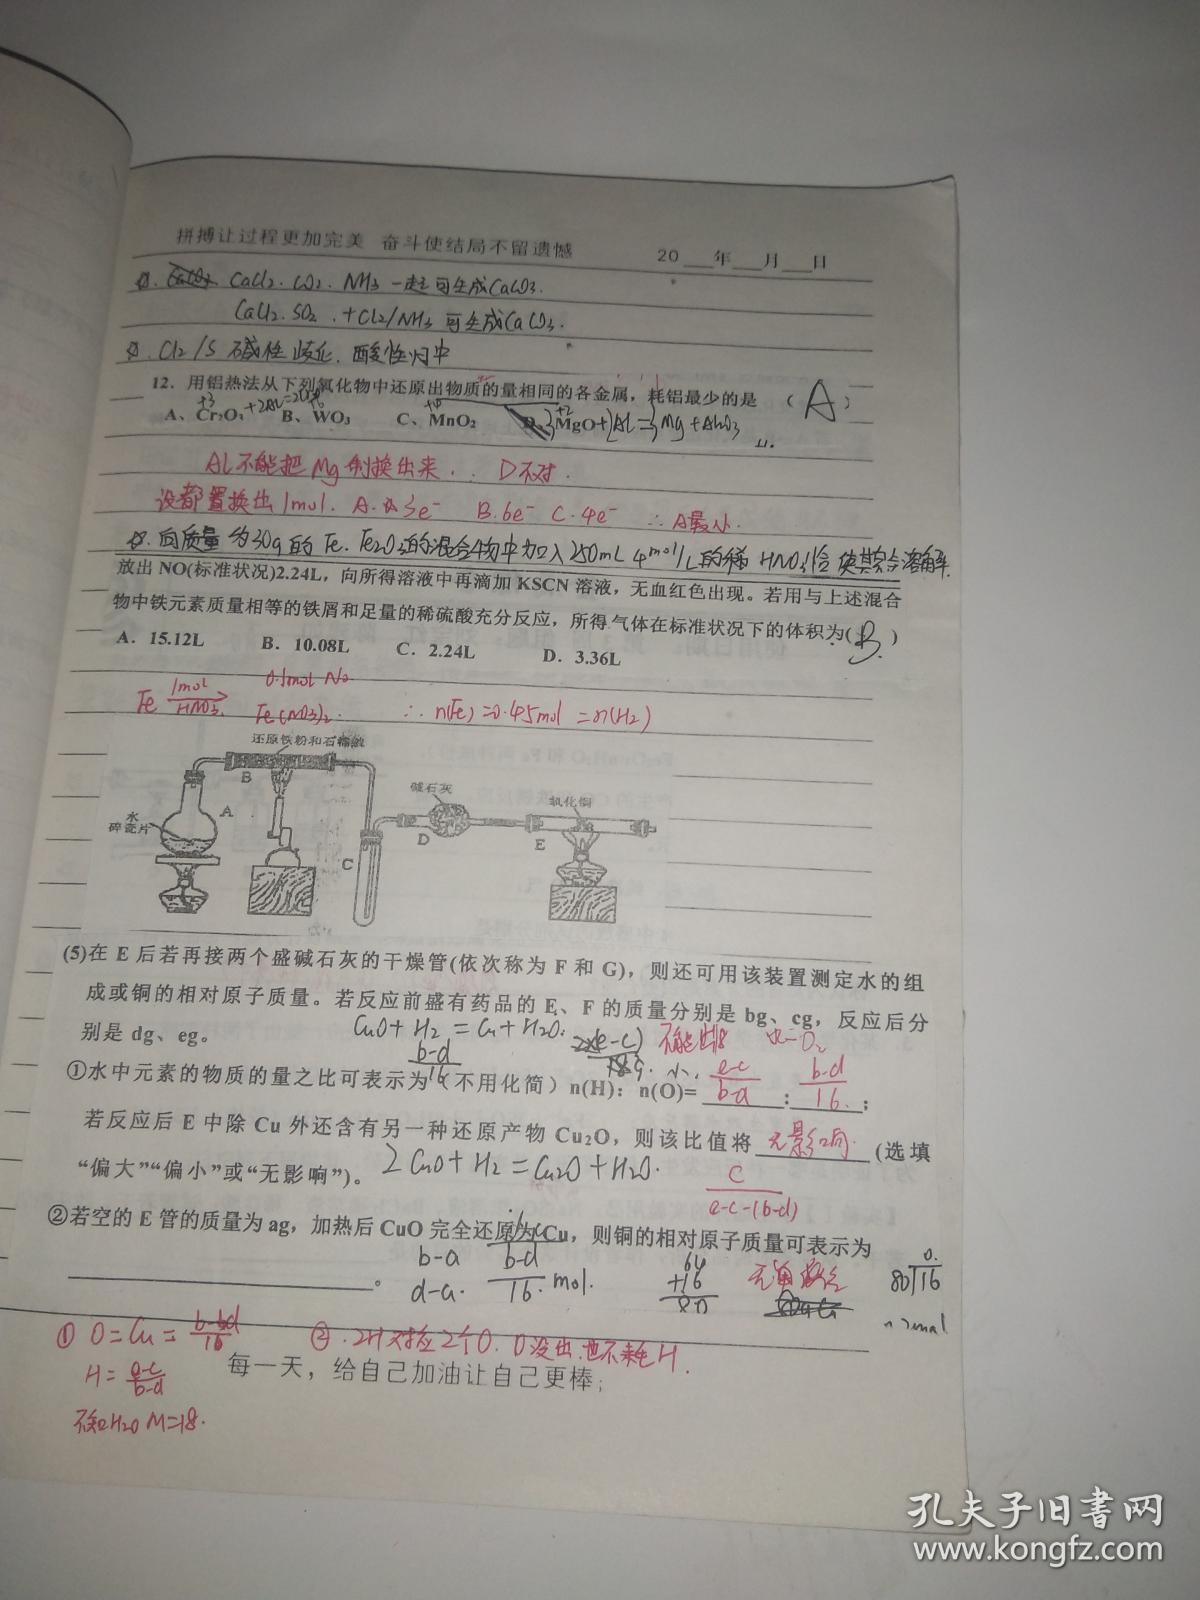 拼搏让过程更加完美 奋斗使结局不留遗憾 20___年___月___日
CaCl2. CO2. NH3 一起可生成CaCO3.
CaCl2. SO2 . + Cl2/NH3 可生成CaCO3.
Cl2/S 碱性歧化. 酸性归中
12．用铝热法从下列氧化物中还原出物质的量相同的各金属，耗铝最少的是 （ A ）
A、Cr2O3 +2Al= B、WO3 C、MnO2 D、3MgO+2Al=3Mg+Al2O3
+3 +6 +4 +2
Al不能把Mg制换出来. ∴ D不对.
设都置换出1mol. A. 3e- B. 6e- C. 4e- ∴ A最小.
向质量为30g的Fe. Fe2O3的混合物中加入250mL 4mol/L的稀HNO3恰使其完全溶解
放出 NO(标准状况)2.24L，向所得溶液中再滴加 KSCN 溶液，无血红色出现。若用与上述混合
物中铁元素质量相等的铁屑和足量的稀硫酸充分反应，所得气体在标准状况下的体积为( B )
A．15.12L B．10.08L C．2.24L D．3.36L
Fe 1mol HNO3 0.1mol NO Fe(NO3)2. ∴ n(Fe)=0.45mol=n(H2)
还原铁粉和石棉绒
B
碱石灰
氧化铜
A
水
碎瓷片
D
E
C
(5)在 E 后若再接两个盛碱石灰的干燥管(依次称为 F 和 G)，则还可用该装置测定水的组
成或铜的相对原子质量。若反应前盛有药品的 E、F 的质量分别是 bg、cg，反应后分
别是 dg、eg。 CuO+H2=Cu+H2O.
b-d/16
①水中元素的物质的量之比可表示为（不用化简）n(H)：n(O)= e-c/b-a : b-d/16 ；
若反应后 E 中除 Cu 外还含有另一种还原产物 Cu2O，则该比值将 无影响 (选填
“偏大”“偏小”或“无影响”)。 2CuO+H2=Cu2O+H2O.
c/e-c-(b-d)
②若空的 E 管的质量为 ag，加热后 CuO 完全还原为 Cu，则铜的相对原子质量可表示为
____________________。
b-a
d-a. b-d/16 mol.
64
+16
80
80 16
① O=Cu=
H= e-c/b-d
② . 2H对应2个O. O没出.也不耗H.
每一天，给自己加油让自己更棒；
H2O M=18.
孔夫子旧书网
www.kongfz.com